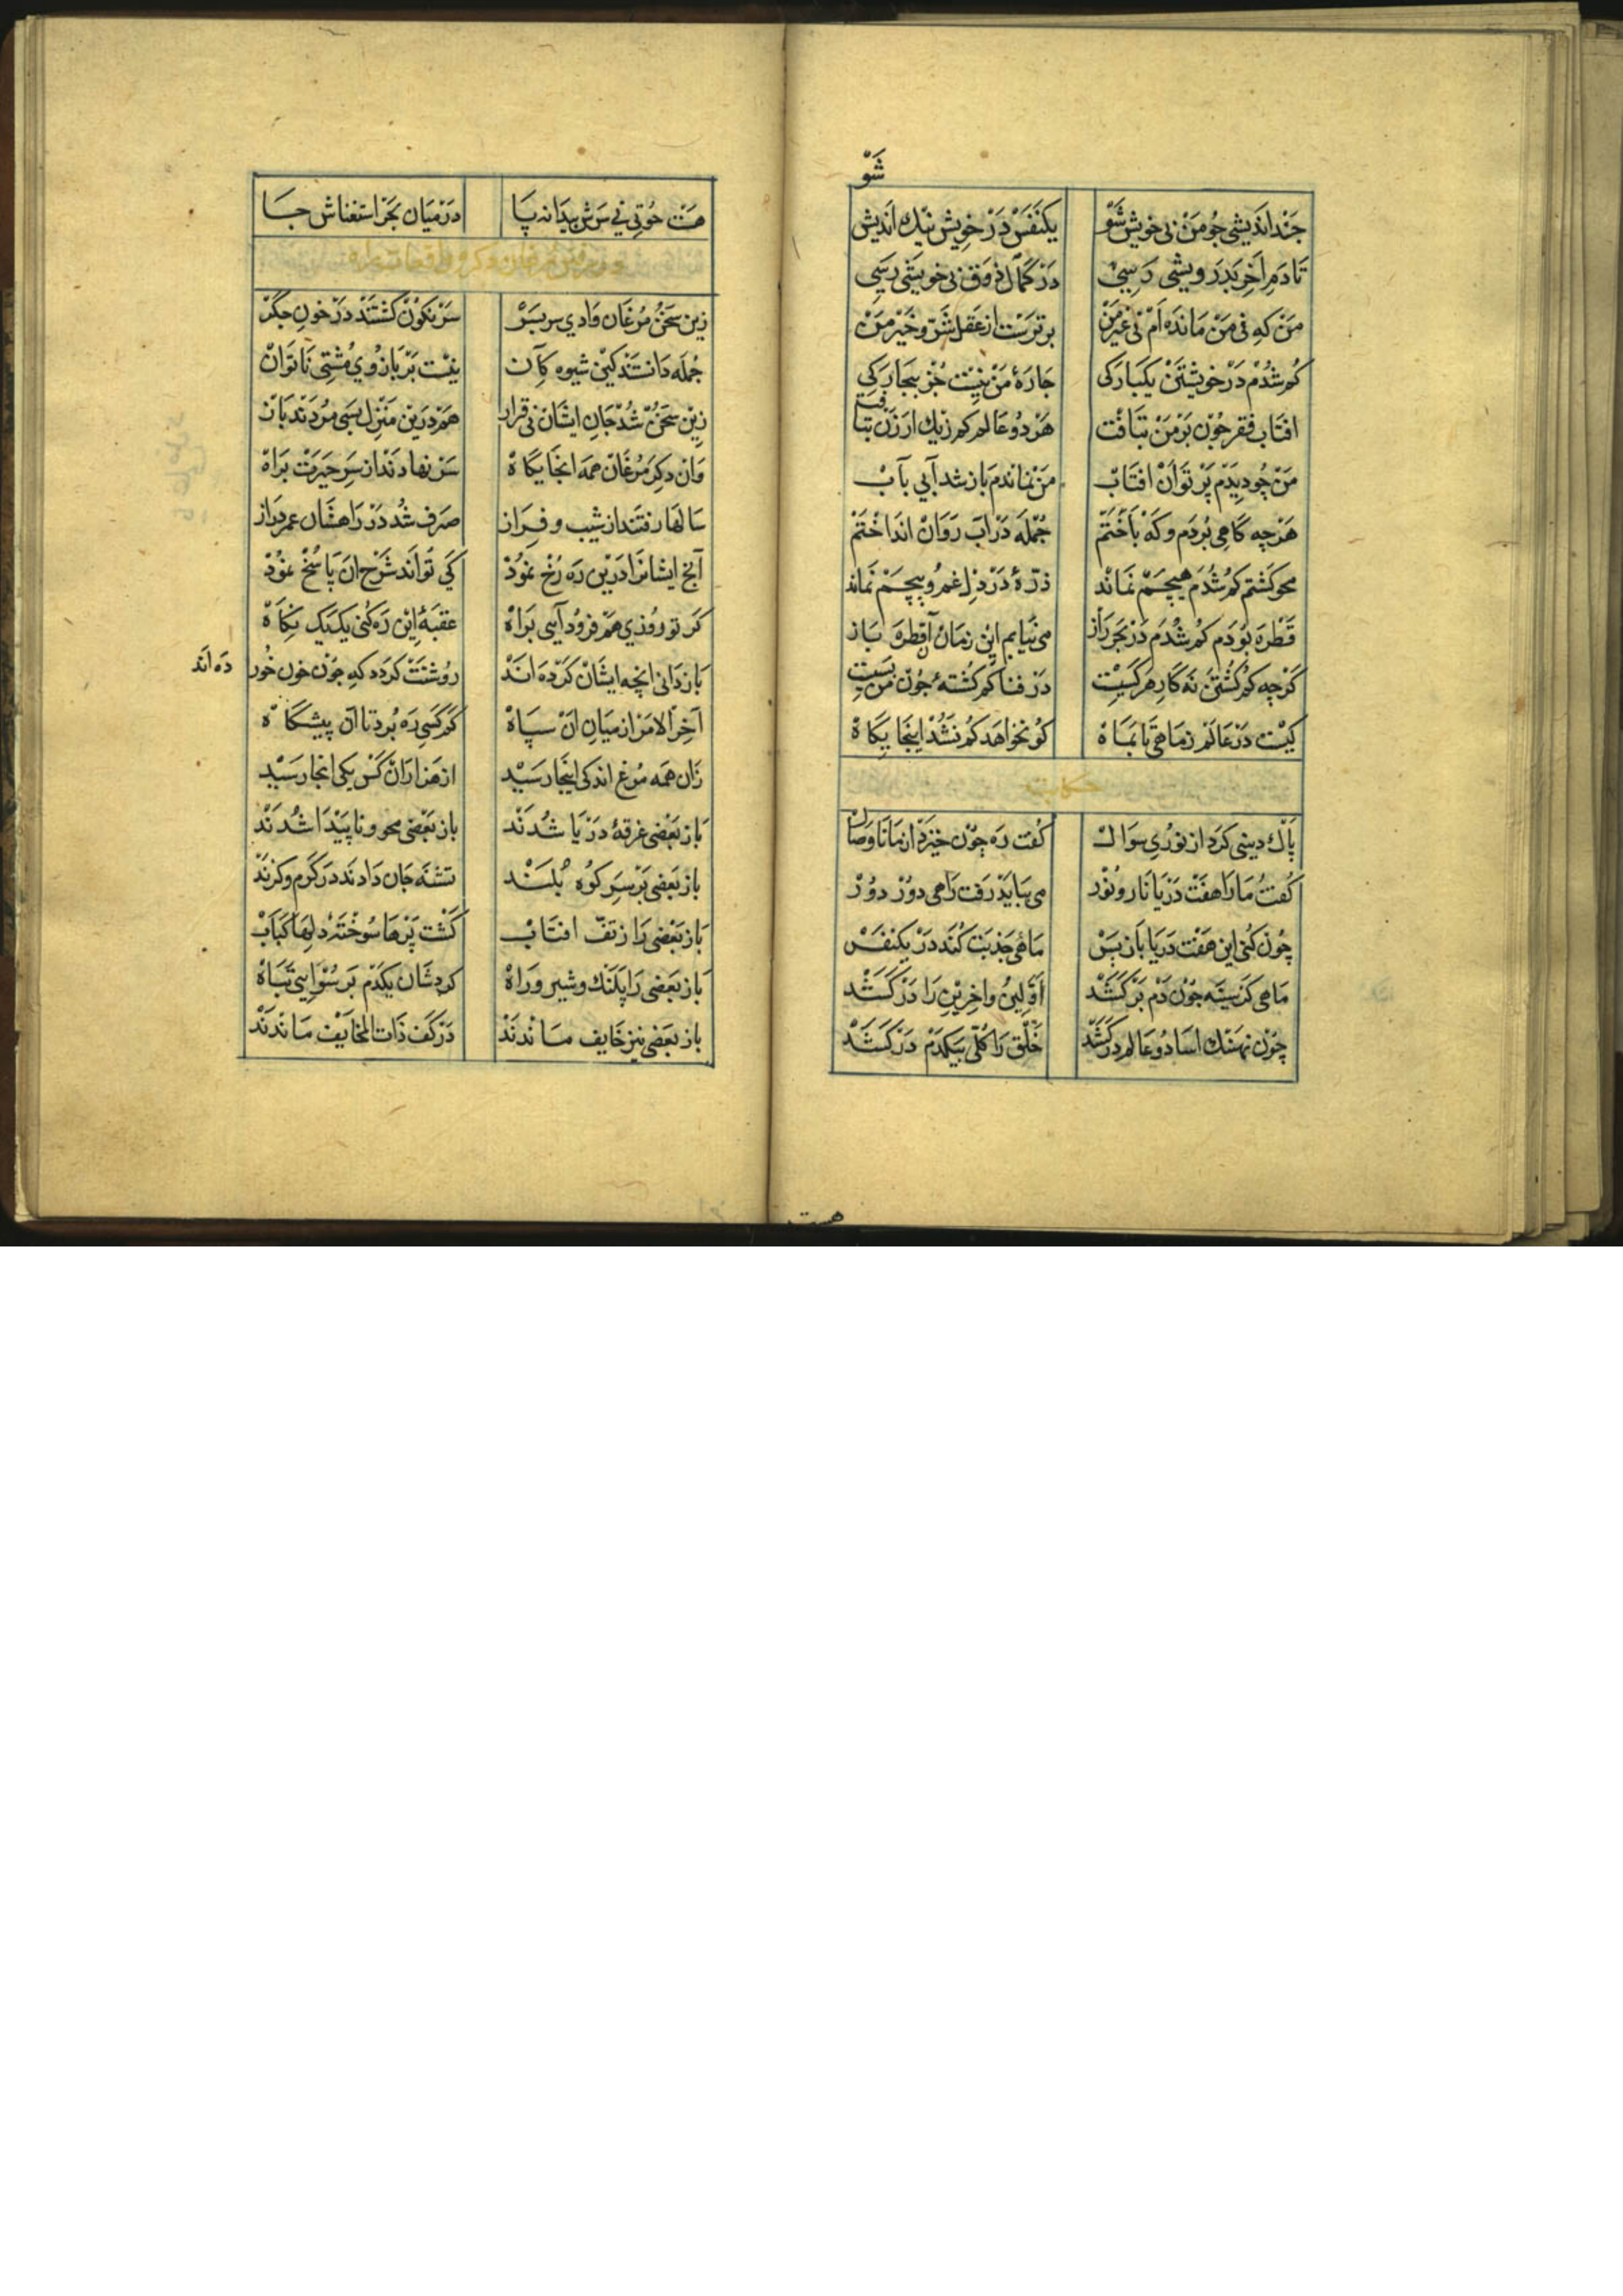 شَوْ
جَند اندَیشی جُو مَنْ بی خویش شَوْ یکنَفَسْ دَرْ خویش نیك اَندیش
تَا دَمِ اَخِر بَدَرویشی رَسِیْ دَرْ کمَالِ ذوَق بی خویشی رَسِی
مَنْ که نی مَنْ مَانده اَمْ نی غیر مَنْ برتَرَست از عَقل شَرّ و خَیْر مَنْ
کُم شُدَمْ دَرْ خویشتَنْ یکبَارَکی جَارَۀ مَنْ نیْست جُز بیجَارَکِی
افتَابِ فقر جُوْن بَرْ مَنْ بتَافت هَرْ دُوْ عَالم کم زیك ارْزَن بیَافت
مَنْ چُو دِیدَمْ پَرْتَو اَنْ افتَابْ مَنْ نمَاندَم بَاز شد آبی بآبْ
هَرْچه کَاهی بُردَم و کَهْ بَاخْتَمْ جُمْلَه دَرْ ابَ رَوَانْ اندَاخْتَمْ
محو کَشتم کُم شُدَم هیچَمْ نمَانْد ذرّۀ دَرْ دِل غم و پیچَمْ نمَاند
قَطْرَه بُوْدَم کُم شُدَم دَرْ بَحْر رَاز می نیَابم این زمَان آن قطرَه بَاز
کَرْچه کُم کَشتَن نَه کَارِ هَر کسیْت دَرْ فنا کُم کَشتَه جُوْن مَنْ بَسیت
کیْست دَرْ عَالَم زمَاهی تَا بمَاهْ کُو نخواهَد کُم شُدْ اینجَایکَاهْ
حکایت
پَاك دینی کَرَد از نوُرِی سوَالْ کُفت ره جِوُن خیزَد از مَا تَا وصَال
کُفتْ مَا رَا هفَتْ دَرْیَا نَار و نوُر می ببَایَدْ رَفت رَاهی دوُرْ دوُرْ
چوُن کُنی این هَفت دَرْیَا بَاز پَسْ مَاهی جَذبَت کُنَد دَرْ یکنفَسْ
مَاهی کَز سینَه جوُن دَم بَرْکَشَدْ اَوَّلین و اخِرینْ رَا دَرْکَشَدْ
چوُن نهَنْك اسَا دُو عَالم دَرْکَشَدْ خَلْق رَا کُلّی بیکدَمْ دَرْکَشَدْ
هست
هَسْت حُوتی نی سَرَش پیدَا نه پَا دَرْ میَان بَحْر استغنَاش جَا
زین سخَنْ مُرغَان وَادی سربسَرْ سَرْنکوُن کشتَند دَرْ خوُنِ جکَرْ
جُمْلَه دَانستَند کین شیوه کمَان نیْست بَرْ بَازُوی مُشتی نَاتَوَانْ
زینْ سخَنْ شُد جَان ایشَان بی قرَار هَم دَرینْ مَنْزل بسَی مُردَند زَار
وَان دِکَر مُرغَانْ همَه انجَایکَاهْ سَرْ نهَادَند از سَرِ حَیرَتْ بَرَاهْ
سَالها رفتَند از شیب و فرَاز صَرْف شُد دَرْ رَاهشَان عمر دِرَاز
آنخ ایشانْرَا دَرین ره رُخْ نموُدْ کی تَوَاند شَرْح ان پَاسُخْ نموُدْ
کَر تو روُزی هَم فروُد آیی برَاهْ عقبَۀ این رَه کُنی یک یک نکَاهْ
بَاز دَانی انچه ایشَانْ کَرْدَه اندْ روُشنَتْ کَردَد که جوُن خوُن خُور دَه اَند
آخِرَ الامَرْ از میَانِ انْ سپَاهْ کَم کَسی رَه بُرد تا آن پیشکَاهْ
زَان همَه مُرغ اندکی اینجَا رسَیْد از هزَارَانْ کَسْ یکی انجَا رسَیْد
بَاز بَعْضی غرقۀ دَرْیَا شُدَند بَاز بَعْضی محو و ناپَیْدَا شُدَند
بَاز بَعْضی بَرْ سَرِ کوُه بُلَنْد تشنَه جَان دَادنَد دَرْ کَرْم و کزَنْد
بَاز بَعْضی رَا ز تفّ افتَابْ کَشت پَرْهَا سوُختَه دِلهَا کَبَابْ
بَاز بَعْضی رَا پَلَنْك و شیرِ رَاهْ کرد شَان یکدَمْ بَرسْوَایی تبَاهْ
بَاز بَعْضی نیز خَایف مَاندَنْد دَرْ کَفِ ذَات المخَایَفْ مَاندَنْد